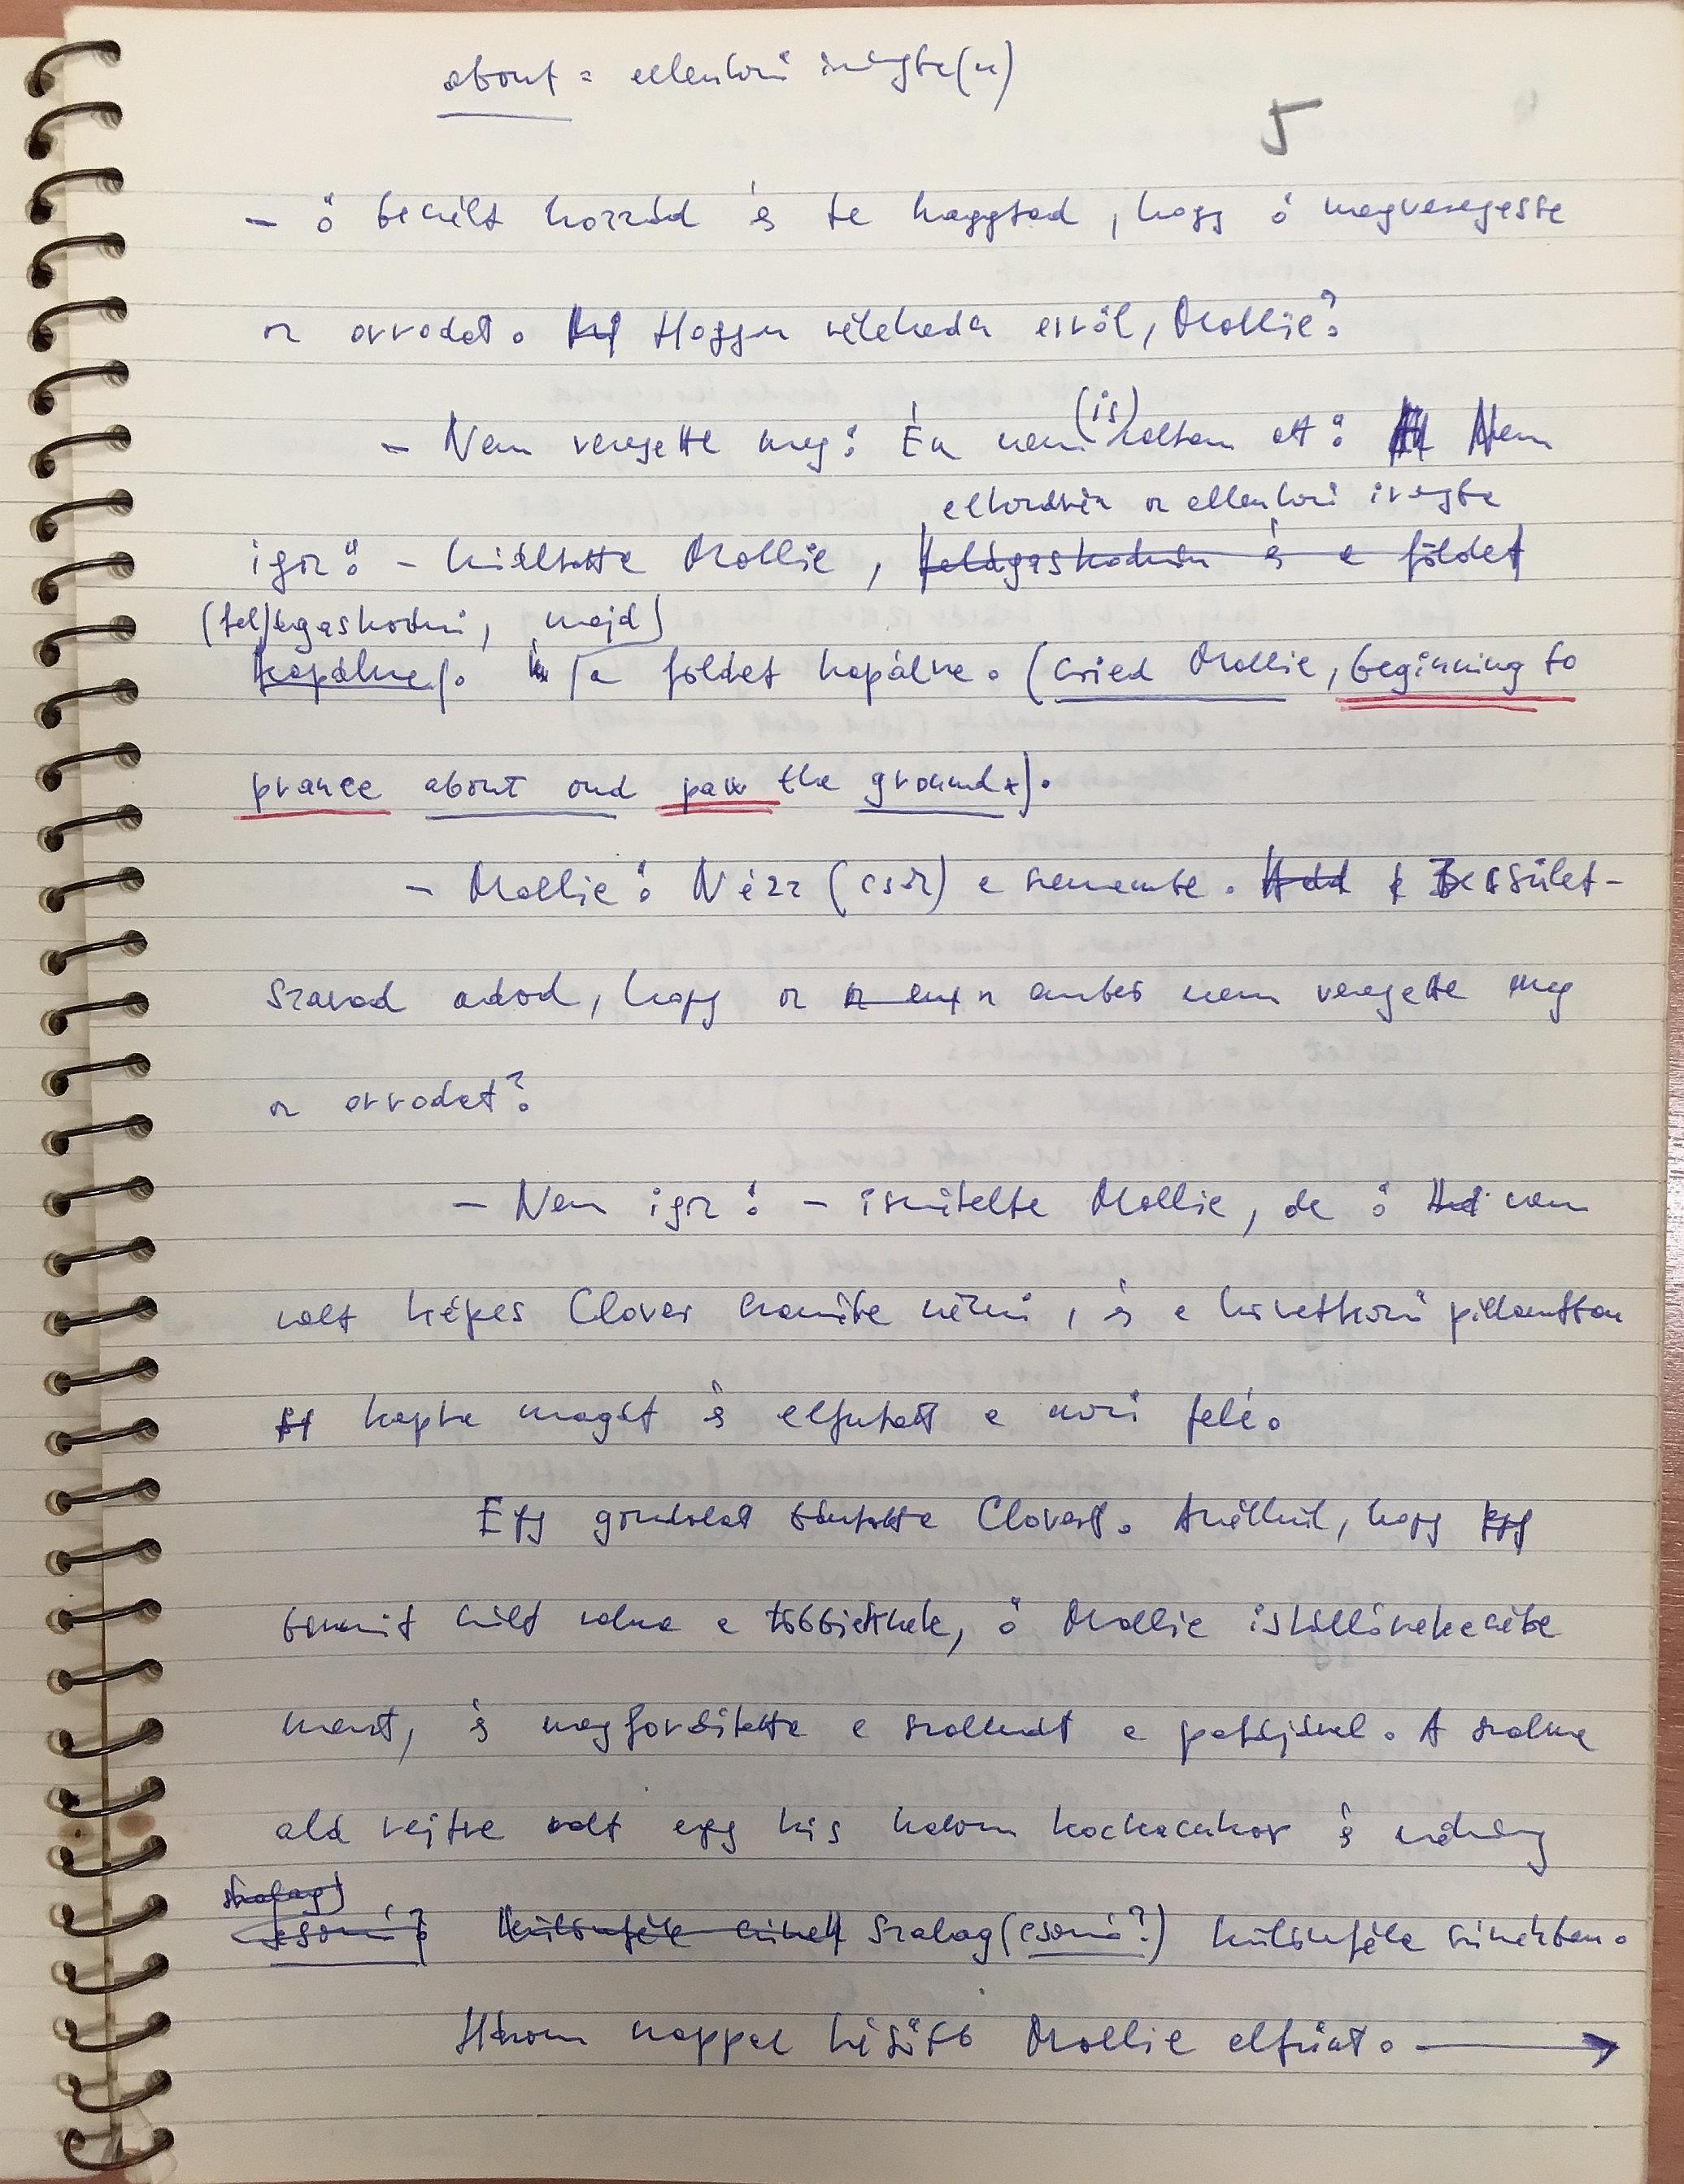 about = ellenkező irányba(n)
5
– ő beszélt hozzád és te hagytad, hogy ő megveregesse
az orrodat. Hogyan vélekedsz erről, Mollie?
– Nem veregette meg! Én nem (is) voltam ott! Nem
elfordulván az ellenkező irányba
igaz! – kiáltotta Mollie, felágaskodván és a földet
(fel)ágaskodni, majd)
kapálva). (a földet kapálva. (cried Mollie, beginning to
prance about and paw the ground).
– Mollie! Nézz (csak) a szemembe. Becsület-
szavad adod, hogy az az ember nem veregette meg
az orrodat?
– Nem igaz! – ismételte Mollie, de ő nem
volt képes Clover szemébe nézni, és a következő pillanatban
kapta magát és elfutott a mező felé.
Egy gondolat bántotta Clovert. Anélkül, hogy
bármit szólt volna a többieknek, ő Mollie istállórekeszébe
ment, és megfordította a szalmát a patájával. A szalma
alá rejtve volt egy kis halom kockacukor és néhány
szalag)
csomó? különféle színek szalag (csomó?) különféle színekben.
Három nappal később Mollie eltűnt. →